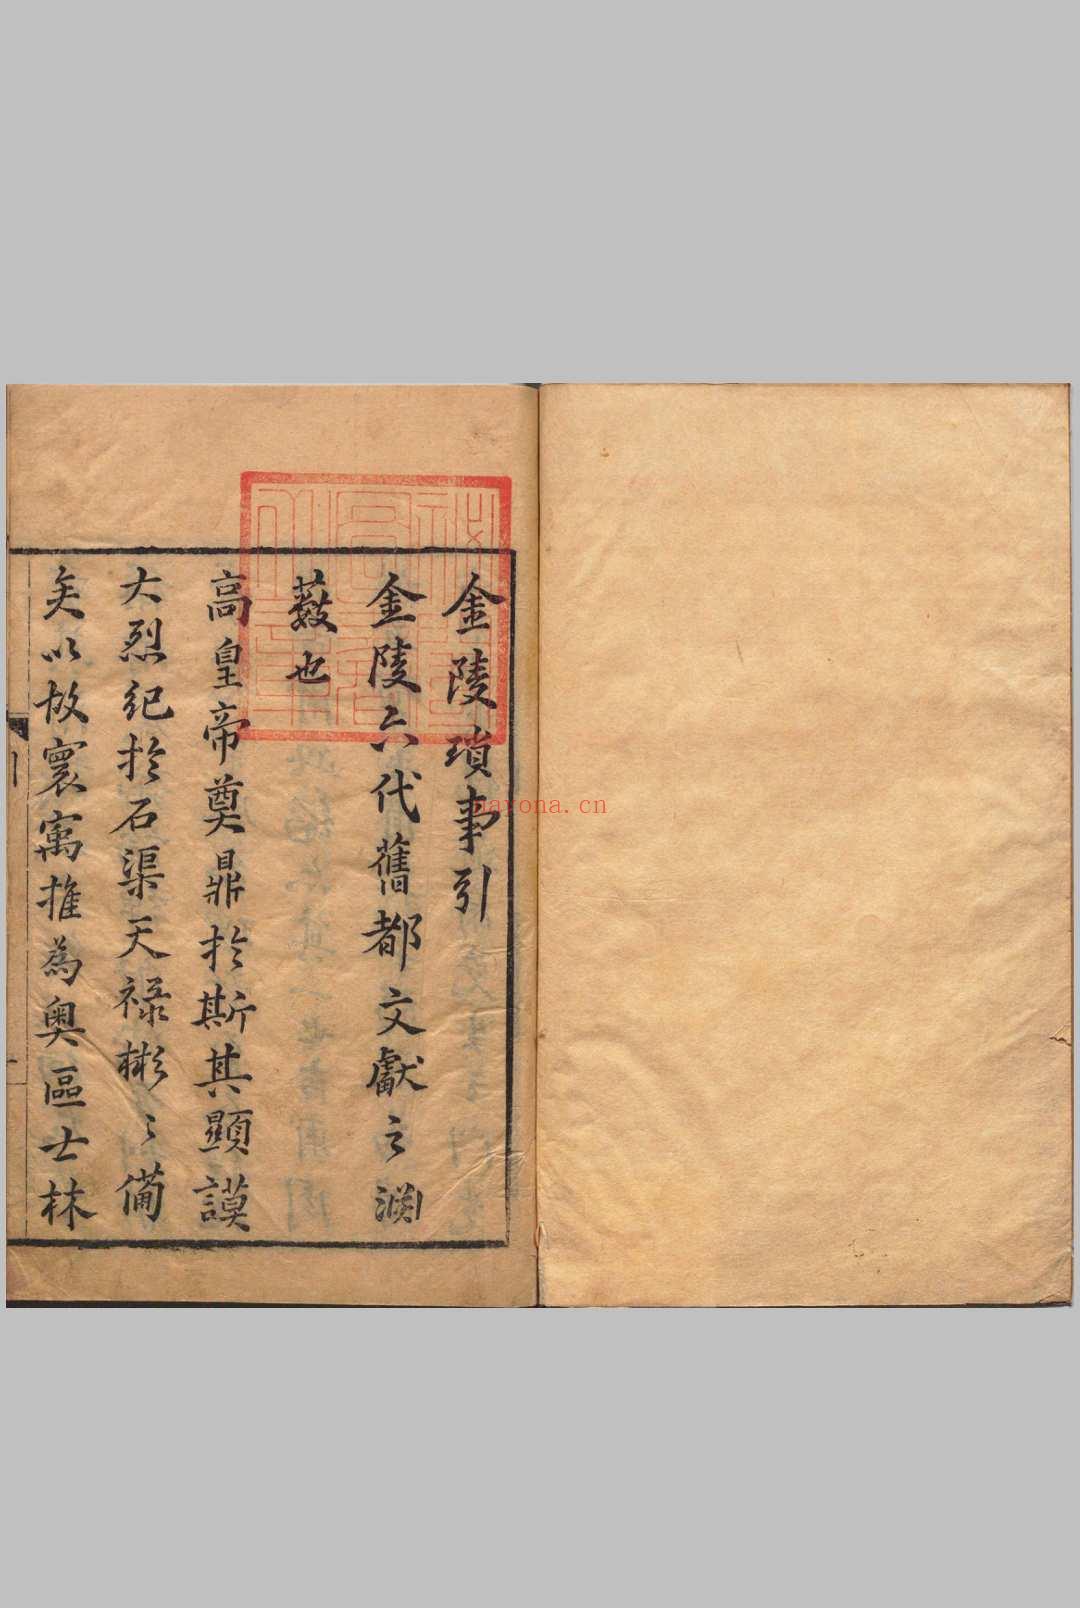 金陵瑣事引
金陵六代舊都文獻之淵
藪也
高皇帝奠鼎於斯其顯謨
大烈紀於石渠天祿彬〻備
矣以故寰㝢推為奧區士林
nayona.cn